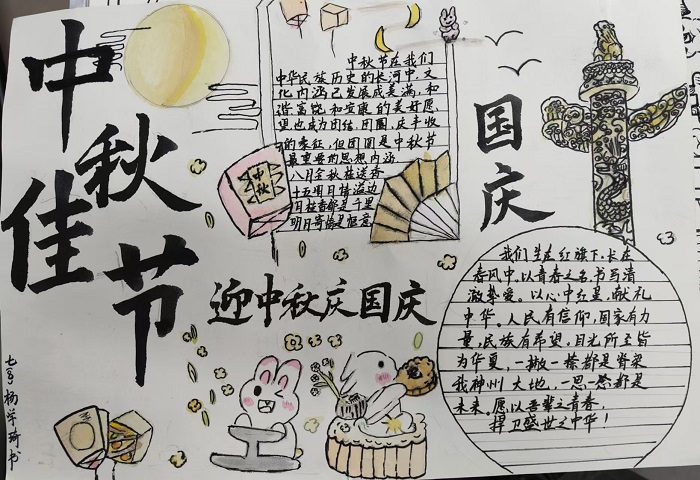 中秋佳节
中秋节在我们
中华民族历史的长河中,文
化内涵已发展成美满、和
谐、富饶、和安康的美好愿
望也成为团结、团圆、庆丰收
的象征,但团圆是中秋节
最重要的思想内涵
八月金秋桂送香
十五明月情溢边
月
明月寄
中秋
国庆
迎中秋庆国庆
我们生在红旗下,长在
春风中,以青春之名,书写清
澈挚爱。以心中红星,献礼
中华。人民有信仰,国家有力
量,民族有希望,目光所至皆
为华夏,一撇一捺都是脊梁
我神州大地,一思一念都是
未来。愿以吾辈之青春,
捍卫盛世之中华!
七(5)杨学琦书